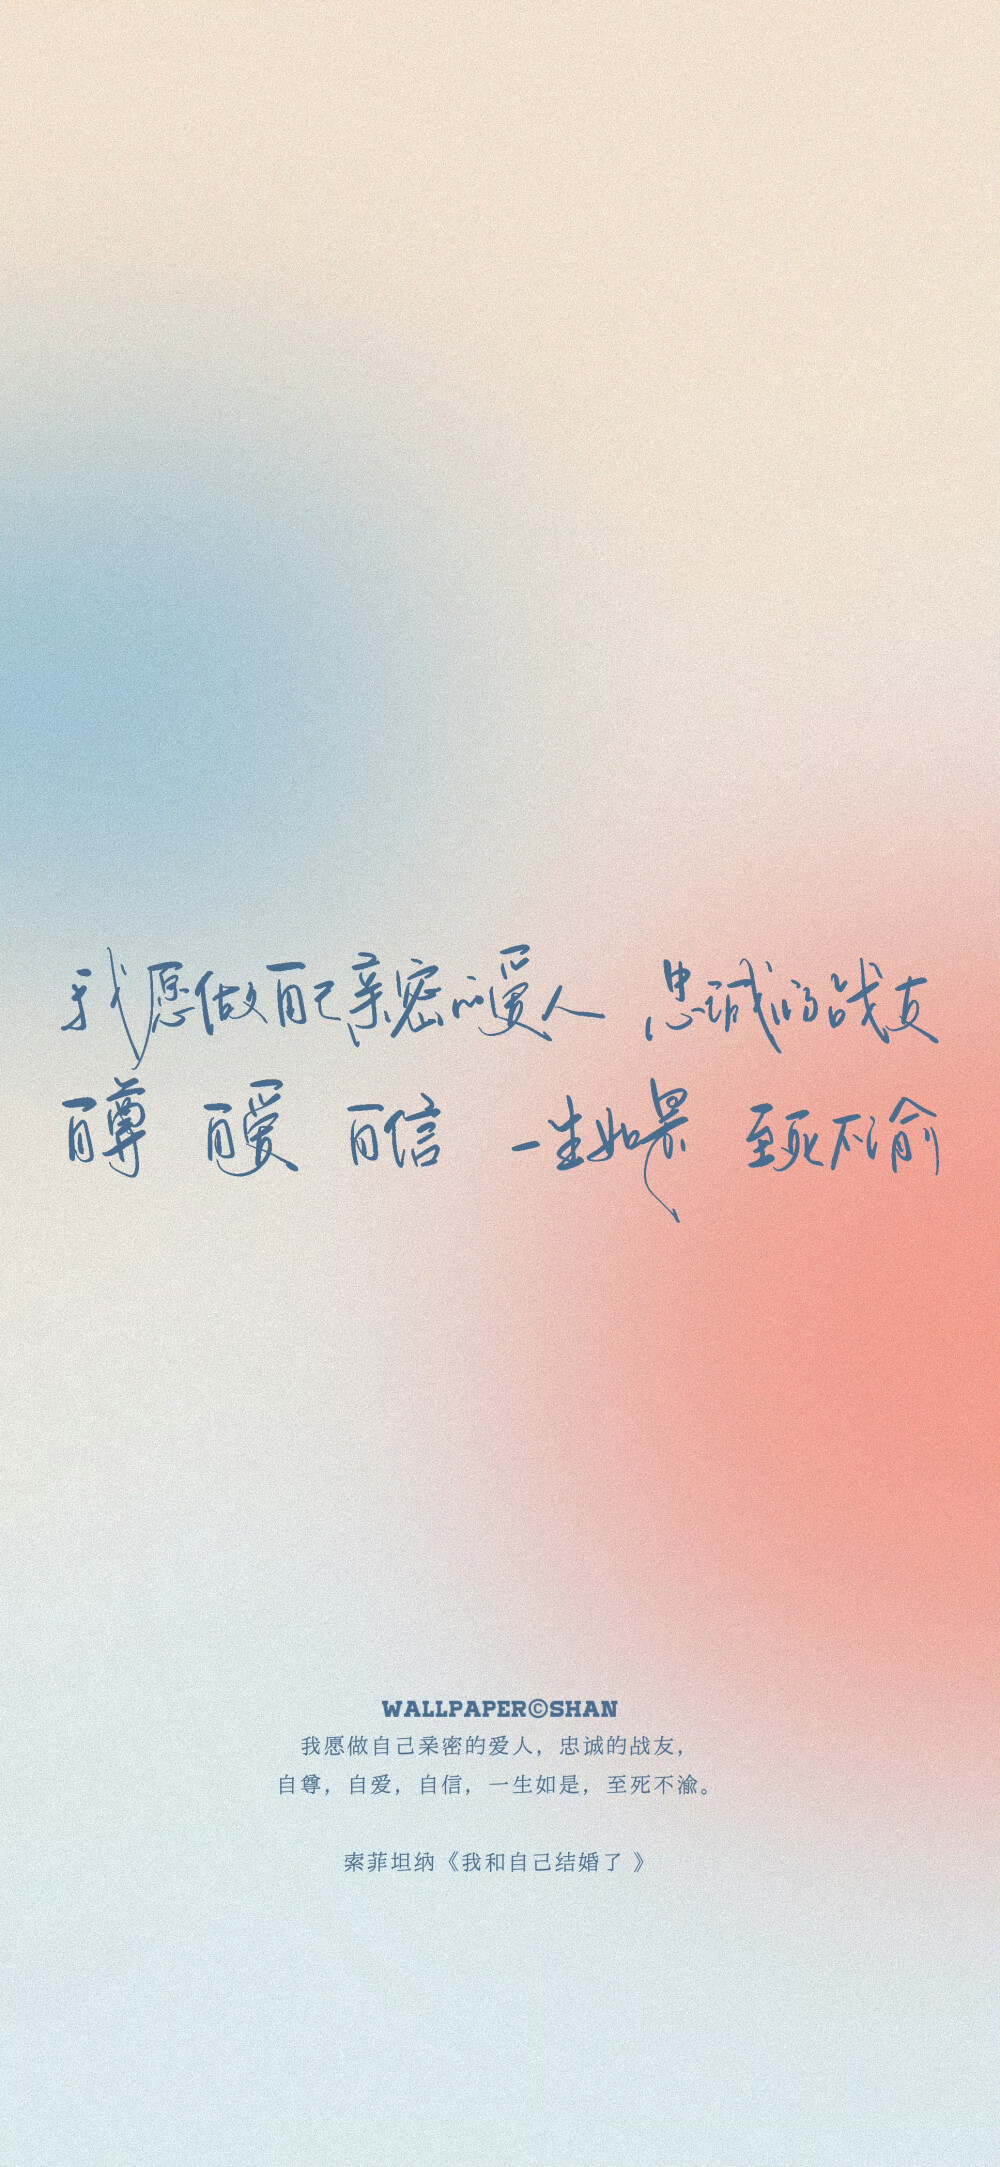 我愿做自己亲密的爱人 忠诚的战友
自尊 自爱 自信 一生如是 至死不渝
WALLPAPER©SHAN
我愿做自己亲密的爱人，忠诚的战友，
自尊，自爱，自信，一生如是，至死不渝。
索菲坦纳《我和自己结婚了 》